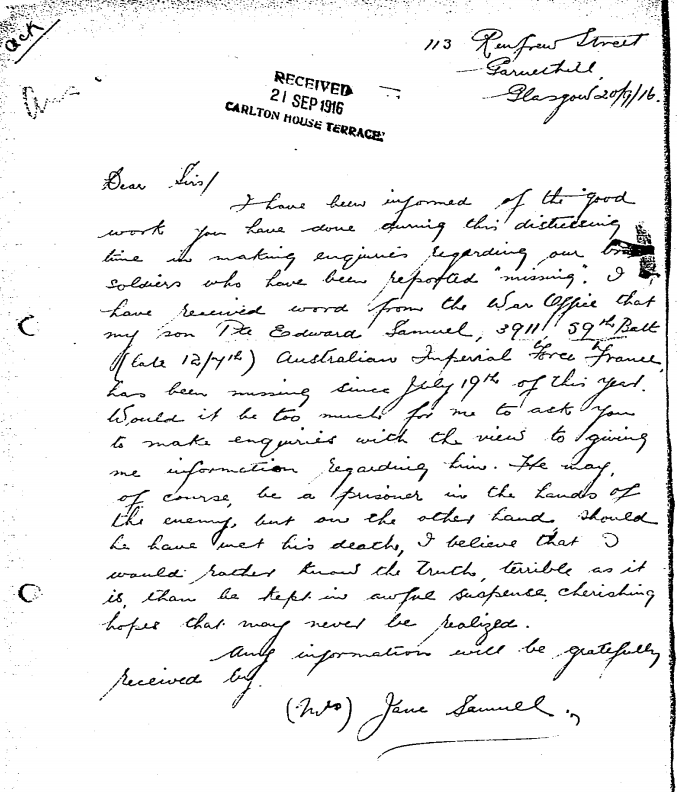 ack
113 Renfrew Street
Garnethill,
Glasgow 20/9/16.
RECEIVED
21 SEP 1916
CARLTON HOUSE TERRACE.
Dear Sirs/
I have been informed of the good
work you have done during this distressing
time in making enquiries regarding our
soldiers who have been reported "missing". I
have received word from the War Office that
my son Pte Edward Samuel, 3911 59th Batt
(late 12/7th) Australian Imperial Force France,
has been missing since July 19th of this year.
Would it be too much for me to ask you
to make enquiries with the view to giving
me information regarding him. He may,
of course, be a prisoner in the hands of
the enemy, but on the other hand, should
he have met his death, I believe that I
would rather know the truth, terrible as it
is, than be kept in awful suspense, cherishing
hopes that may never be realized.
Any information will be gratefully
received by.
(Mrs) Jane Samuel.